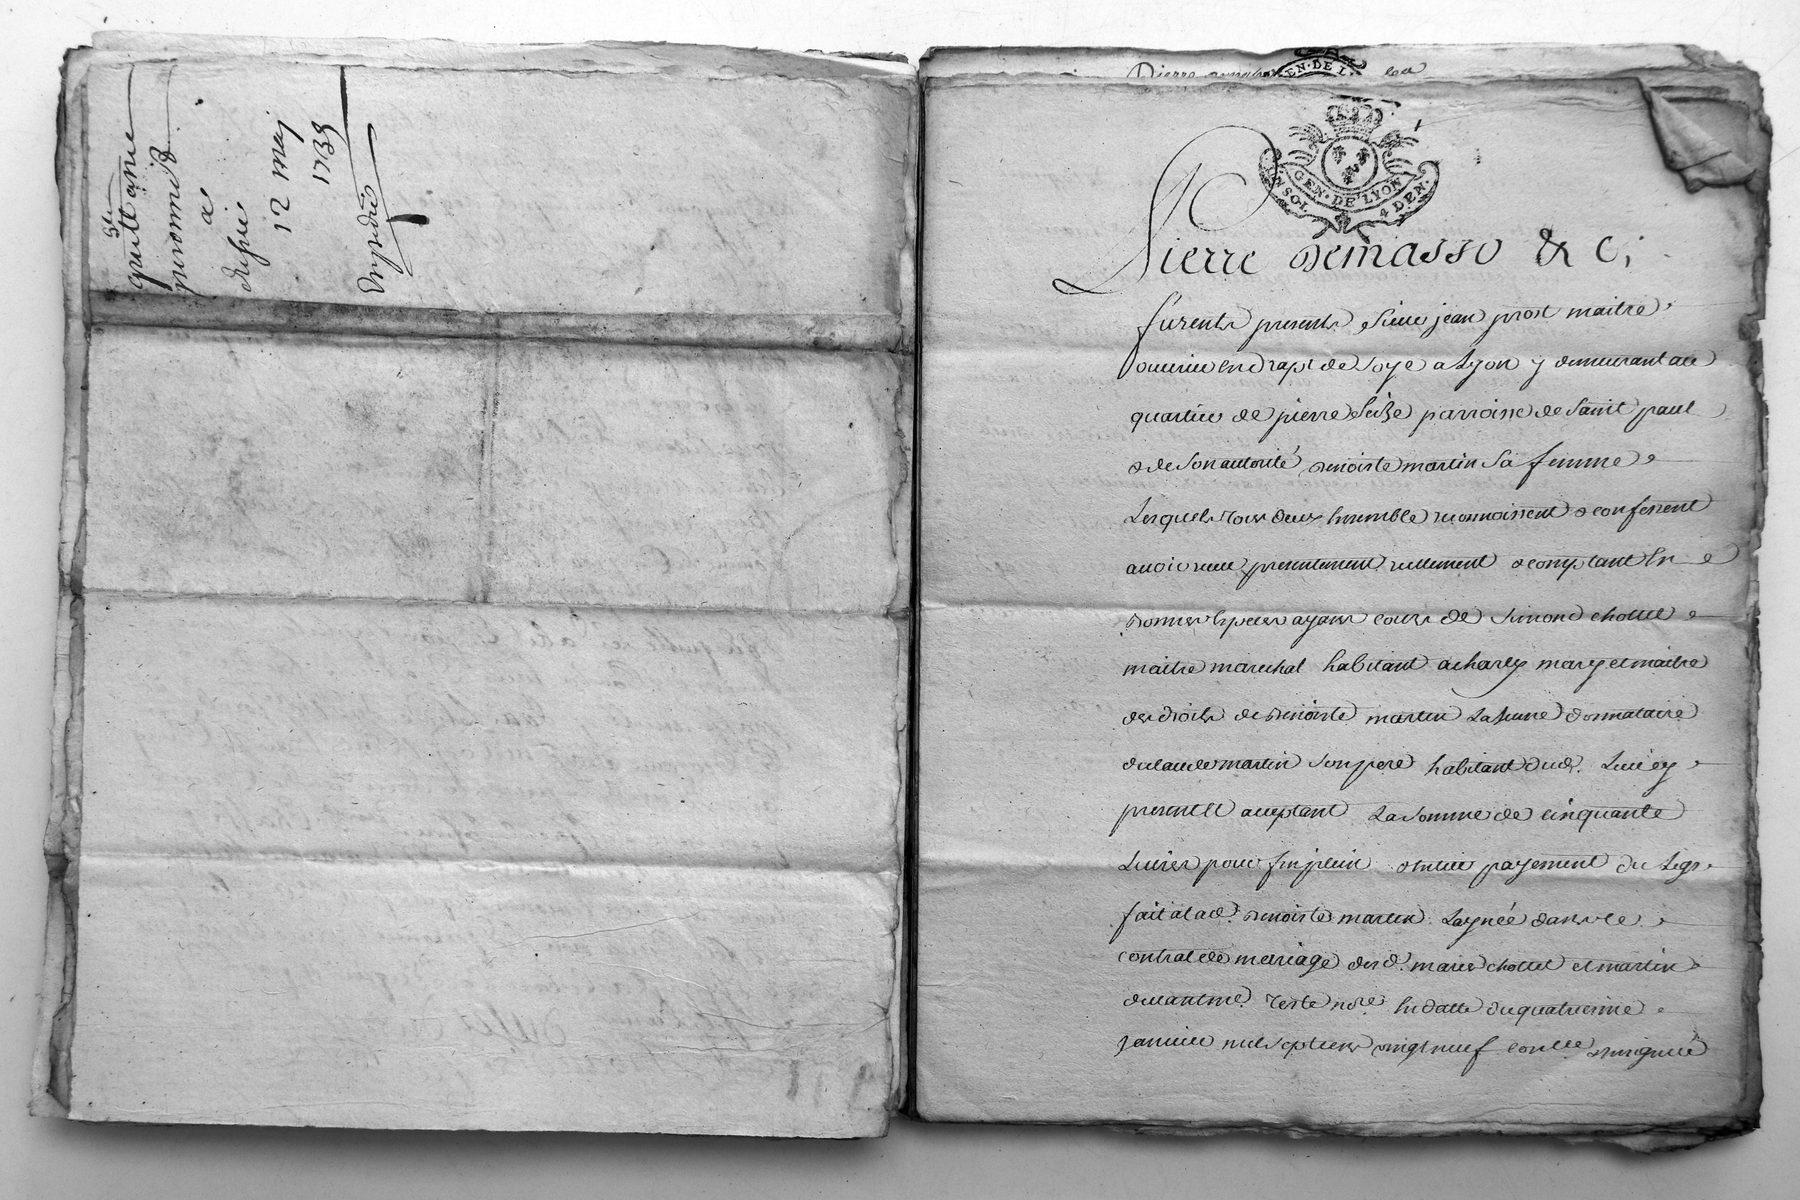 5te
quittance
peronnet
a
dupié
12 may
1735
Expedié
Pierre
EN. DE L
GEN. DE LYON
IN SOL. 4 DEN.
Pierre Demasso & c,
furents presents sieur jean prost maitre
ouurier en draps de soye a Lyon y demeurant au
quartier de pierre Scize parroisse de Saint paul
& de son autorité benoiste martin sa femme
Lesquels tous deux Ensemble reconnoissent & confessent
auoir receu presentement reellement & comptant En
bonnes Especes ayans cours de Simond chollet
maitre marechal habitant a charly mary et maitre
des droits de benoiste martin La jeune donnataire
de claude martin son pere habitant dud.
present Et acceptant La somme de cinquante
Liures pour fin plein & entier payement du Legs
fait a lad. benoiste martin Laynée dans le
contrat de mariage desd. mariés chollet et martin
deuant me. teste nore. En datte du quatrieme
januier mil sept cens vingt neuf controllé a